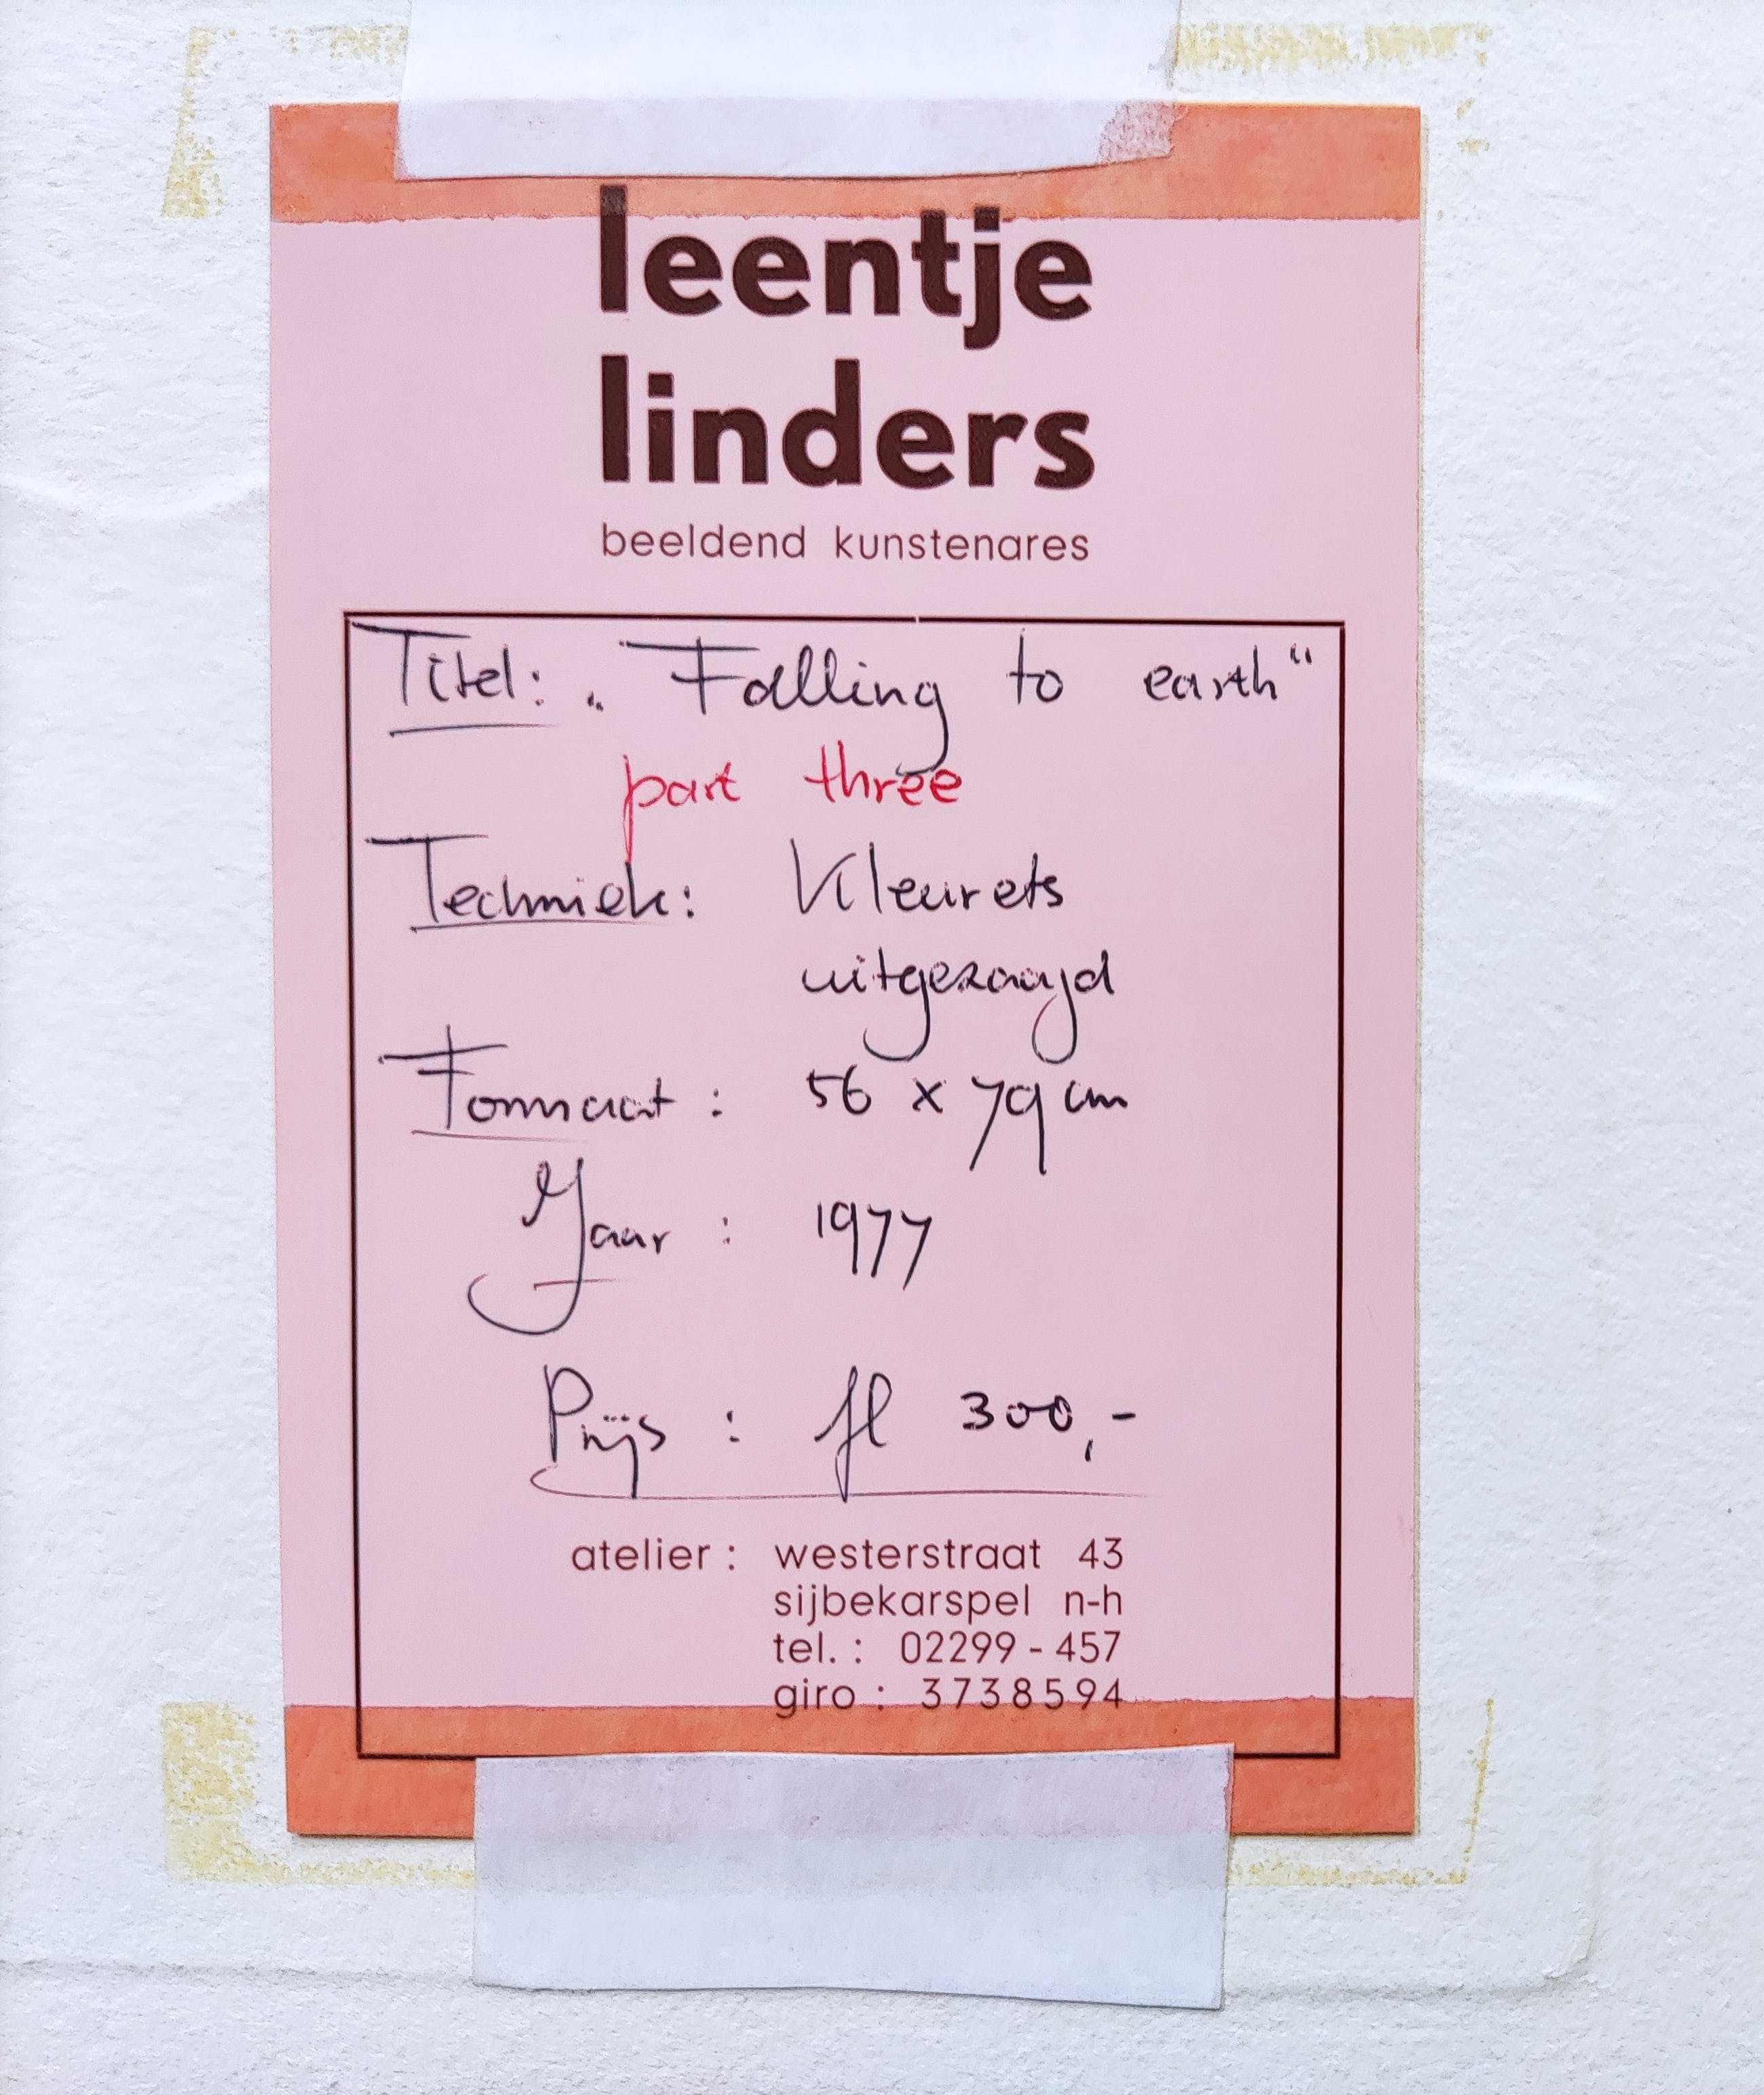 leentje
linders
beeldend kunstenares
Titel: „Falling to earth“
part three
Techniek: Kleurets
uitgezaagd
Formaat : 56 x 79 cm
Jaar : 1977
Prijs : fl 300,-
atelier : westerstraat 43
sijbekarspel n-h
tel. : 02299 - 457
giro : 3738594